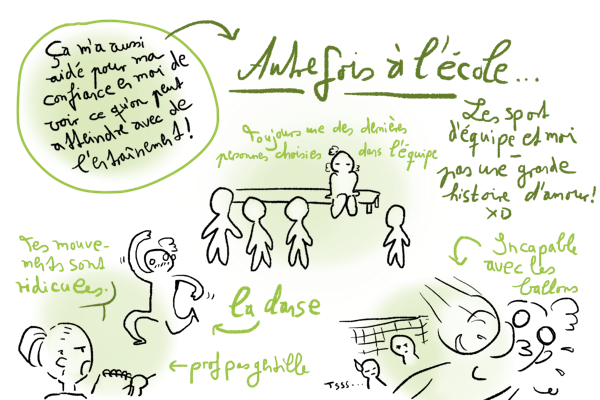 Ça m'a aussi
aidé pour ma
confiance en moi de
voir ce qu'on peut
atteindre avec de
l'entraînement!
Autrefois à l'école...
Toujours une des dernières
personnes choisies dans l'équipe
Les sport
d'équipe et moi
–
pas une grande
histoire d'amour!
XD
Tes mouve-
ments sont
ridicules.
la danse
← prof pas gentille
Incapable
avec les
ballons
Tsss...